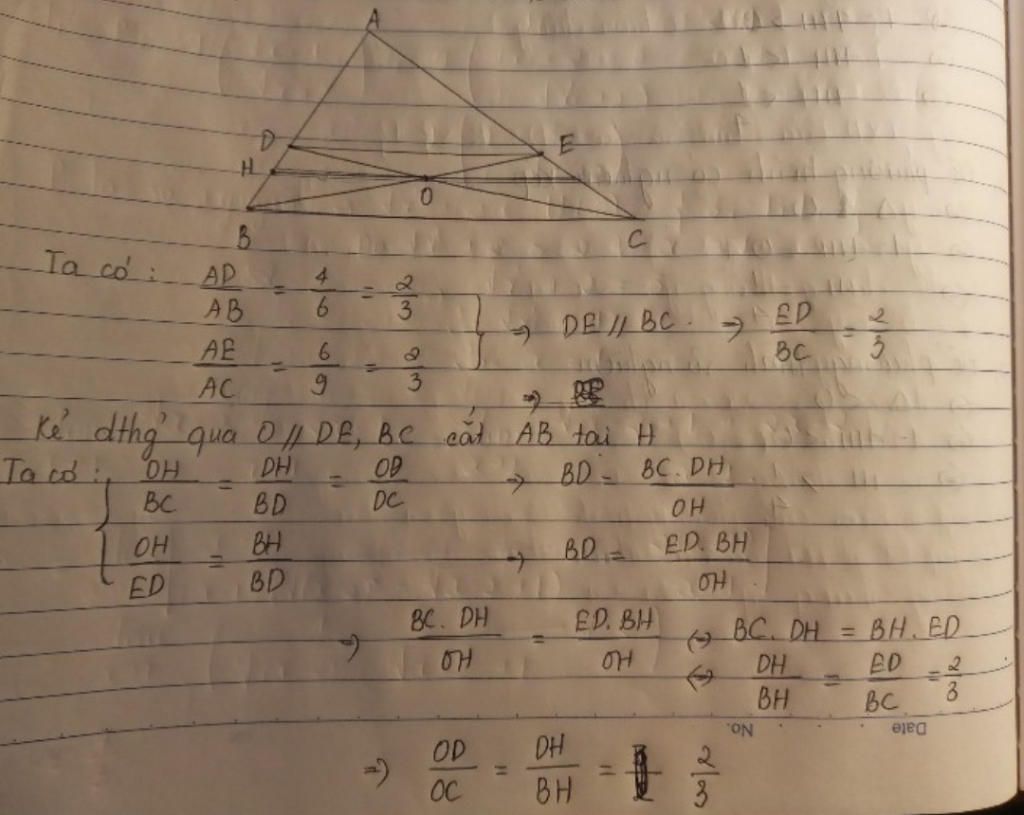 A
D
E
H
O
B
C
Ta có : AD/AB = 4/6 = 2/3
AE/AC = 6/9 = 2/3
} => DE // BC. => ED/BC = 2/3
=>
Kẻ đthg̉ qua O // DE, BC cắt AB tại H
Ta có : { OH/BC = DH/BD = OD/DC => BD = BC.DH/OH
OH/ED = BH/BD => BD = ED.BH/OH
=> BC.DH/OH = ED.BH/OH <=> BC.DH = BH.ED
<=> DH/BH = ED/BC = 2/3
No. Date
=> OD/OC = DH/BH = 2/3